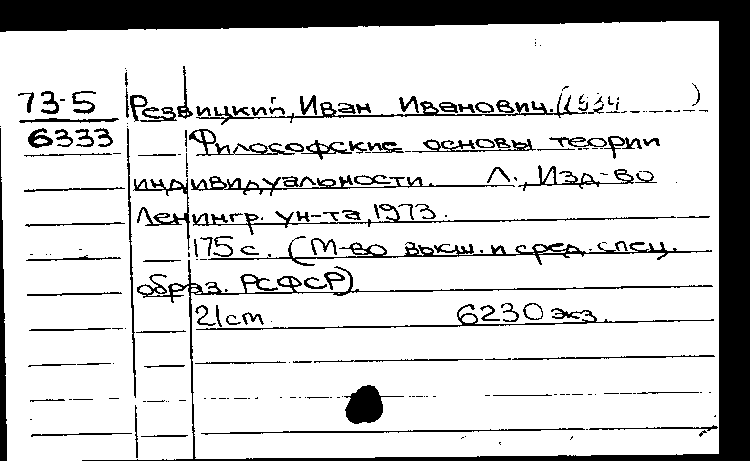 73-5 Резвицкий, Иван Иванович. (1934 )
6333 Философские основы теории
индивидуальности. Л., Изд-во
Ленингр. ун-та, 1973.
175 с. (М-во высш. и сред. спец.
образ. РСФСР).
21cm 6230 экз.